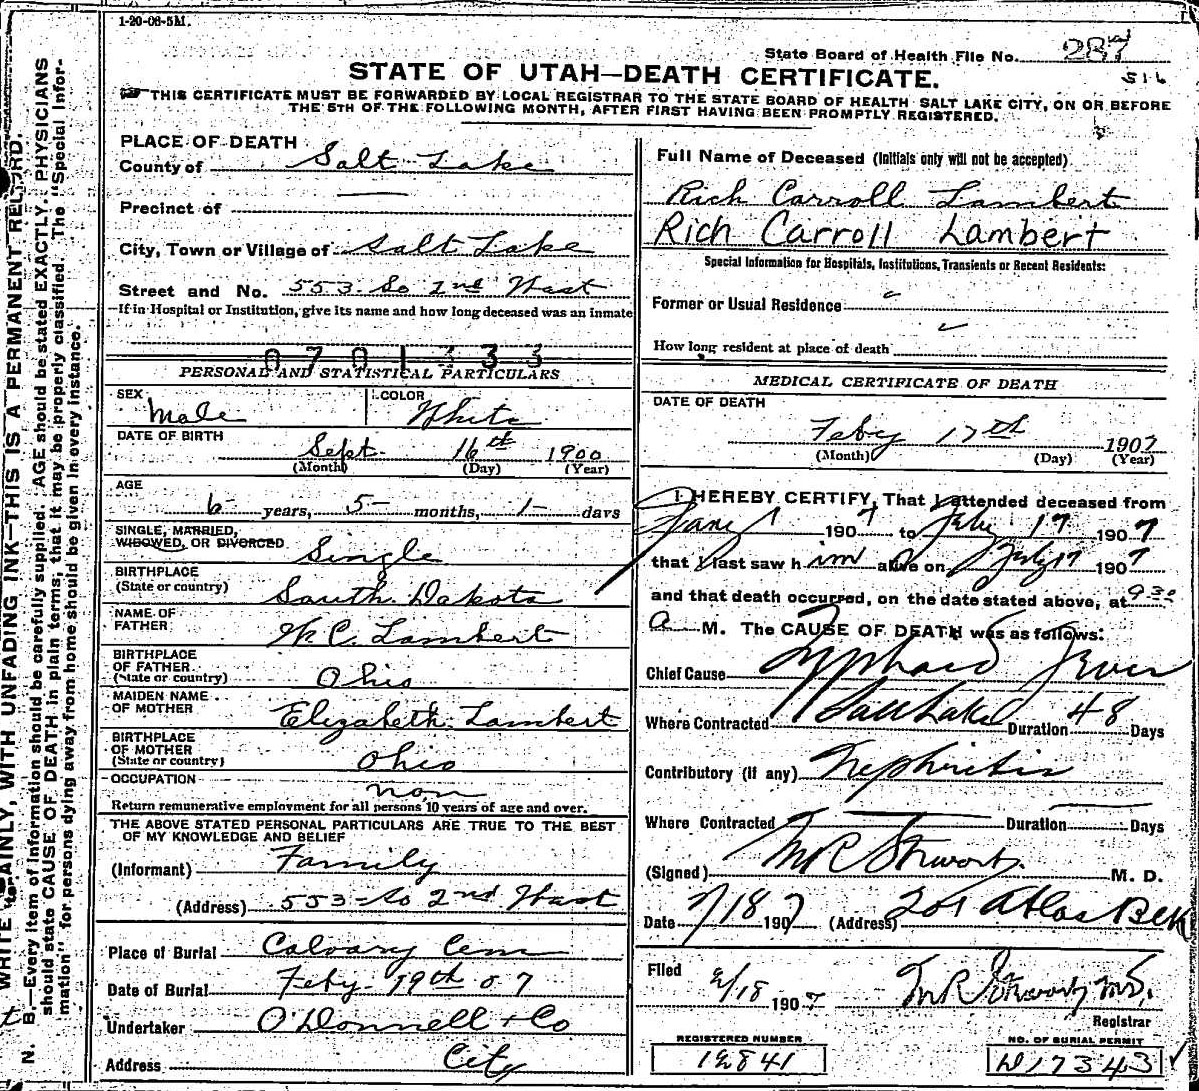 1-20-06-5M.
State Board of Health File No. 287
516
STATE OF UTAH—DEATH CERTIFICATE.
THIS CERTIFICATE MUST BE FORWARDED BY LOCAL REGISTRAR TO THE STATE BOARD OF HEALTH SALT LAKE CITY, ON OR BEFORE
THE 5TH OF THE FOLLOWING MONTH, AFTER FIRST HAVING BEEN PROMPTLY REGISTERED.
PLACE OF DEATH
County of Salt Lake
Precinct of
City, Town or Village of Salt Lake
Street and No. 553 So 2nd West
If in Hospital or Institution, give its name and how long deceased was an inmate
PERSONAL AND STATISTICAL PARTICULARS
SEX Male
COLOR White
DATE OF BIRTH Sept. 16th 1900
(Month) (Day) (Year)
AGE 6 years, 5 months, 1 days
SINGLE, MARRIED,
WIDOWED, OR DIVORCED Single
BIRTHPLACE
(State or country) South Dakota
NAME OF
FATHER W C. Lambert
BIRTHPLACE
OF FATHER
(State or country) Ohio
MAIDEN NAME
OF MOTHER Elizabeth Lambert
BIRTHPLACE
OF MOTHER
(State or country) Ohio
OCCUPATION non
Return remunerative employment for all persons 10 years of age and over.
THE ABOVE STATED PERSONAL PARTICULARS ARE TRUE TO THE BEST
OF MY KNOWLEDGE AND BELIEF
(Informant) Family
(Address) 553 So 2nd West
Place of Burial Calvary Cem
Date of Burial Feby 19th 07
Undertaker O'Donnell + Co
Address City
Full Name of Deceased (Initials only will not be accepted)
Rich Carroll Lambert
Rich Carroll Lambert
Special Information for Hospitals, Institutions, Transients or Recent Residents:
Former or Usual Residence
How long resident at place of death
MEDICAL CERTIFICATE OF DEATH
DATE OF DEATH
Feby 17th 1907
(Month) (Day) (Year)
I HEREBY CERTIFY, That I attended deceased from
Jany 1 1907 to Feby 17 1907
that I last saw him alive on Feby 17 1907
and that death occurred, on the date stated above, at 9 30
a M. The CAUSE OF DEATH was as follows:
Chief Cause Typhoid Fever
Where Contracted Salt Lake Duration 48 Days
Contributory (if any) Nephritis
Where Contracted Duration Days
(Signed) M. D.
Date 2/18 1907 (Address) 201 Atlas Blk
Filed 2/18 1907
Registrar
REGISTERED NUMBER
NO. OF BURIAL PERMIT
D17343
N. B.—Every item of Information should be carefully supplied. AGE should be stated EXACTLY. PHYSICIANS
should state CAUSE OF DEATH in plain terms, that it may be properly classified. The "Special Infor-
mation" for persons dying away from home should be given in every instance.
WRITE PLAINLY, WITH UNFADING INK—THIS IS A PERMANENT RECORD.